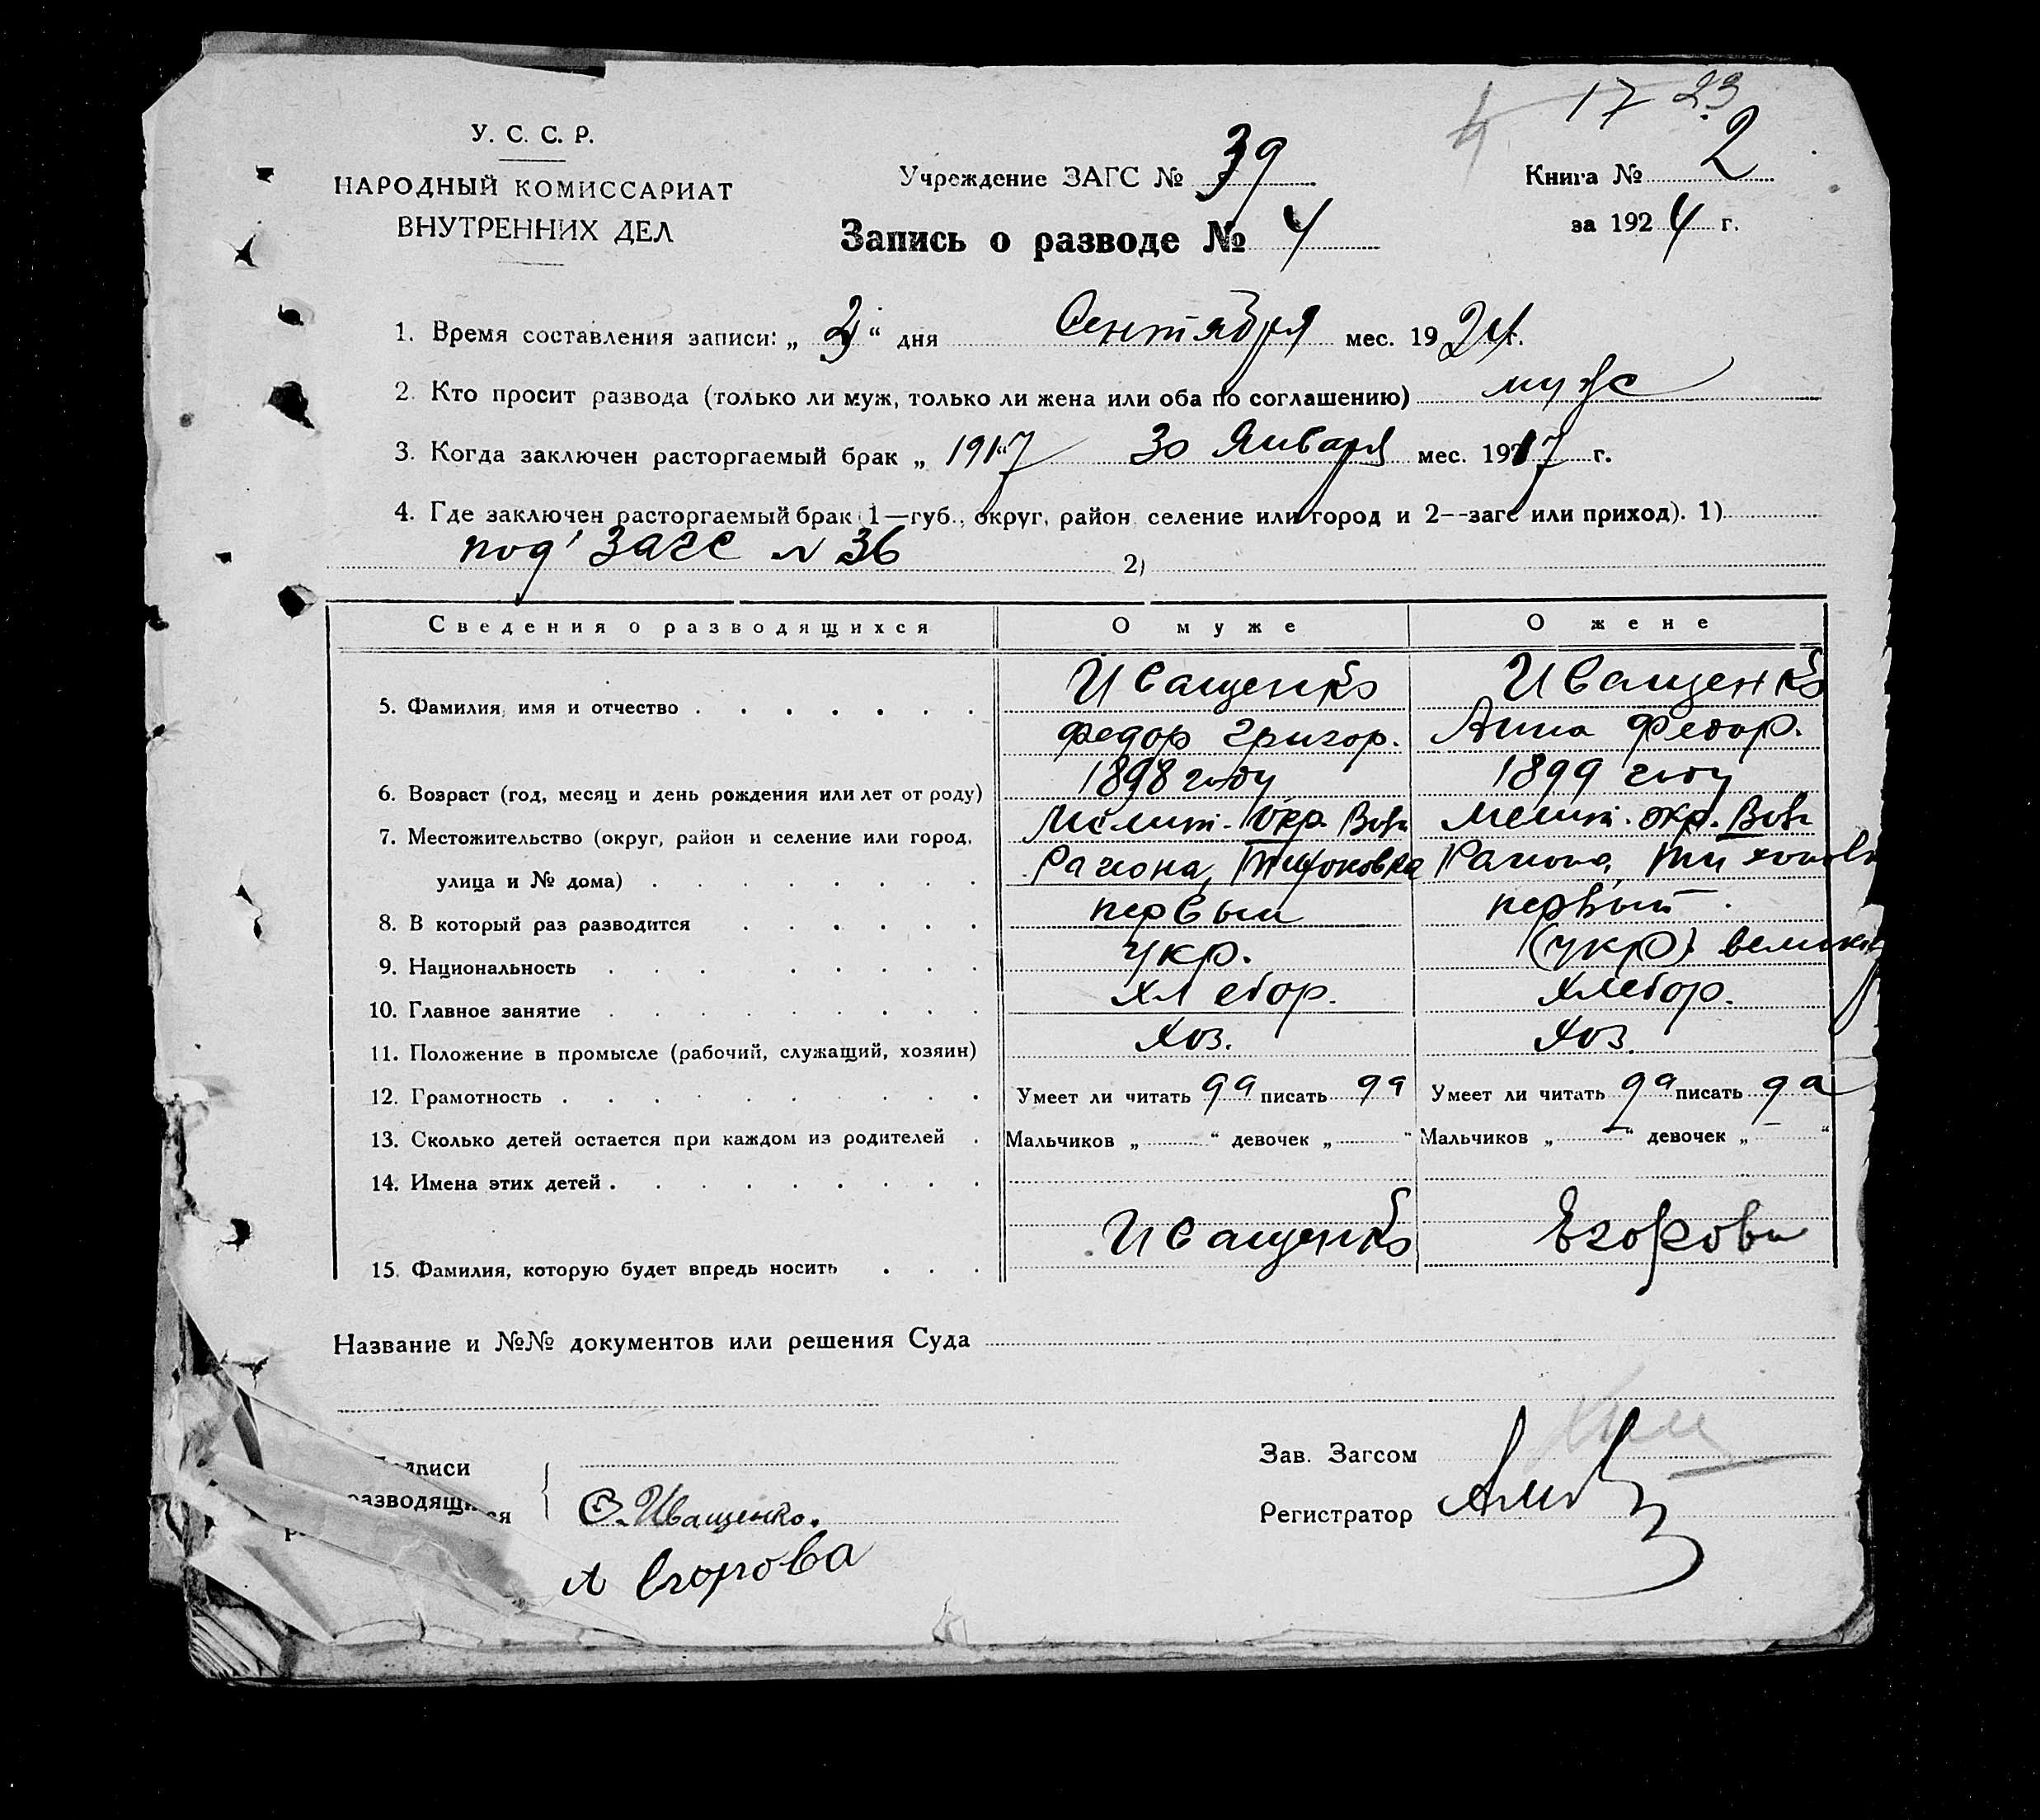 4 17 23
У. С. С. Р.
НАРОДНЫЙ КОМИССАРИАТ
ВНУТРЕННИХ ДЕЛ
Учреждение ЗАГС № 39
Книга № 2
Запись о разводе № 4
за 1924 г.
1. Время составления записи: „ “ дня Сентября мес. 1924 г.
2. Кто просит развода (только ли муж, только ли жена или оба по соглашению) муж
3. Когда заключен расторгаемый брак „ 1917 “ 30 Января мес. 1917 г.
4. Где заключен расторгаемый брак (1—губ., округ, район, селение или город и 2—загс или приход). 1)
под' Загс № 36 2)
Сведения о разводящихся О муже О жене
Иващенко Иващенко
5. Фамилия, имя и отчество
Федор Григор. Анна Федор.
6. Возраст (год, месяц и день рождения или лет от роду) 1898 году 1899 году
7. Местожительство (округ, район и селение или город, Мелит. Окр. Мелит. окр.
улица и № дома) Района, Тихоновка Района,
8. В который раз разводится первый первый
9. Национальность укр. (укр)
10. Главное занятие Хлебор. Хлебор.
11. Положение в промысле (рабочий, служащий, хозяин) Хоз. Хоз.
12. Грамотность Умеет ли читать да писать да Умеет ли читать да писать да
13. Сколько детей остается при каждом из родителей Мальчиков „ “ девочек „ “ Мальчиков „ — “ девочек „ — “
14. Имена этих детей
15. Фамилия, которую будет впредь носить Иващенко Егорова
Название и №№ документов или решения Суда
Подписи
разводящихся
Ф. Иващенко.
А Егорова
Зав. Загсом
Регистратор